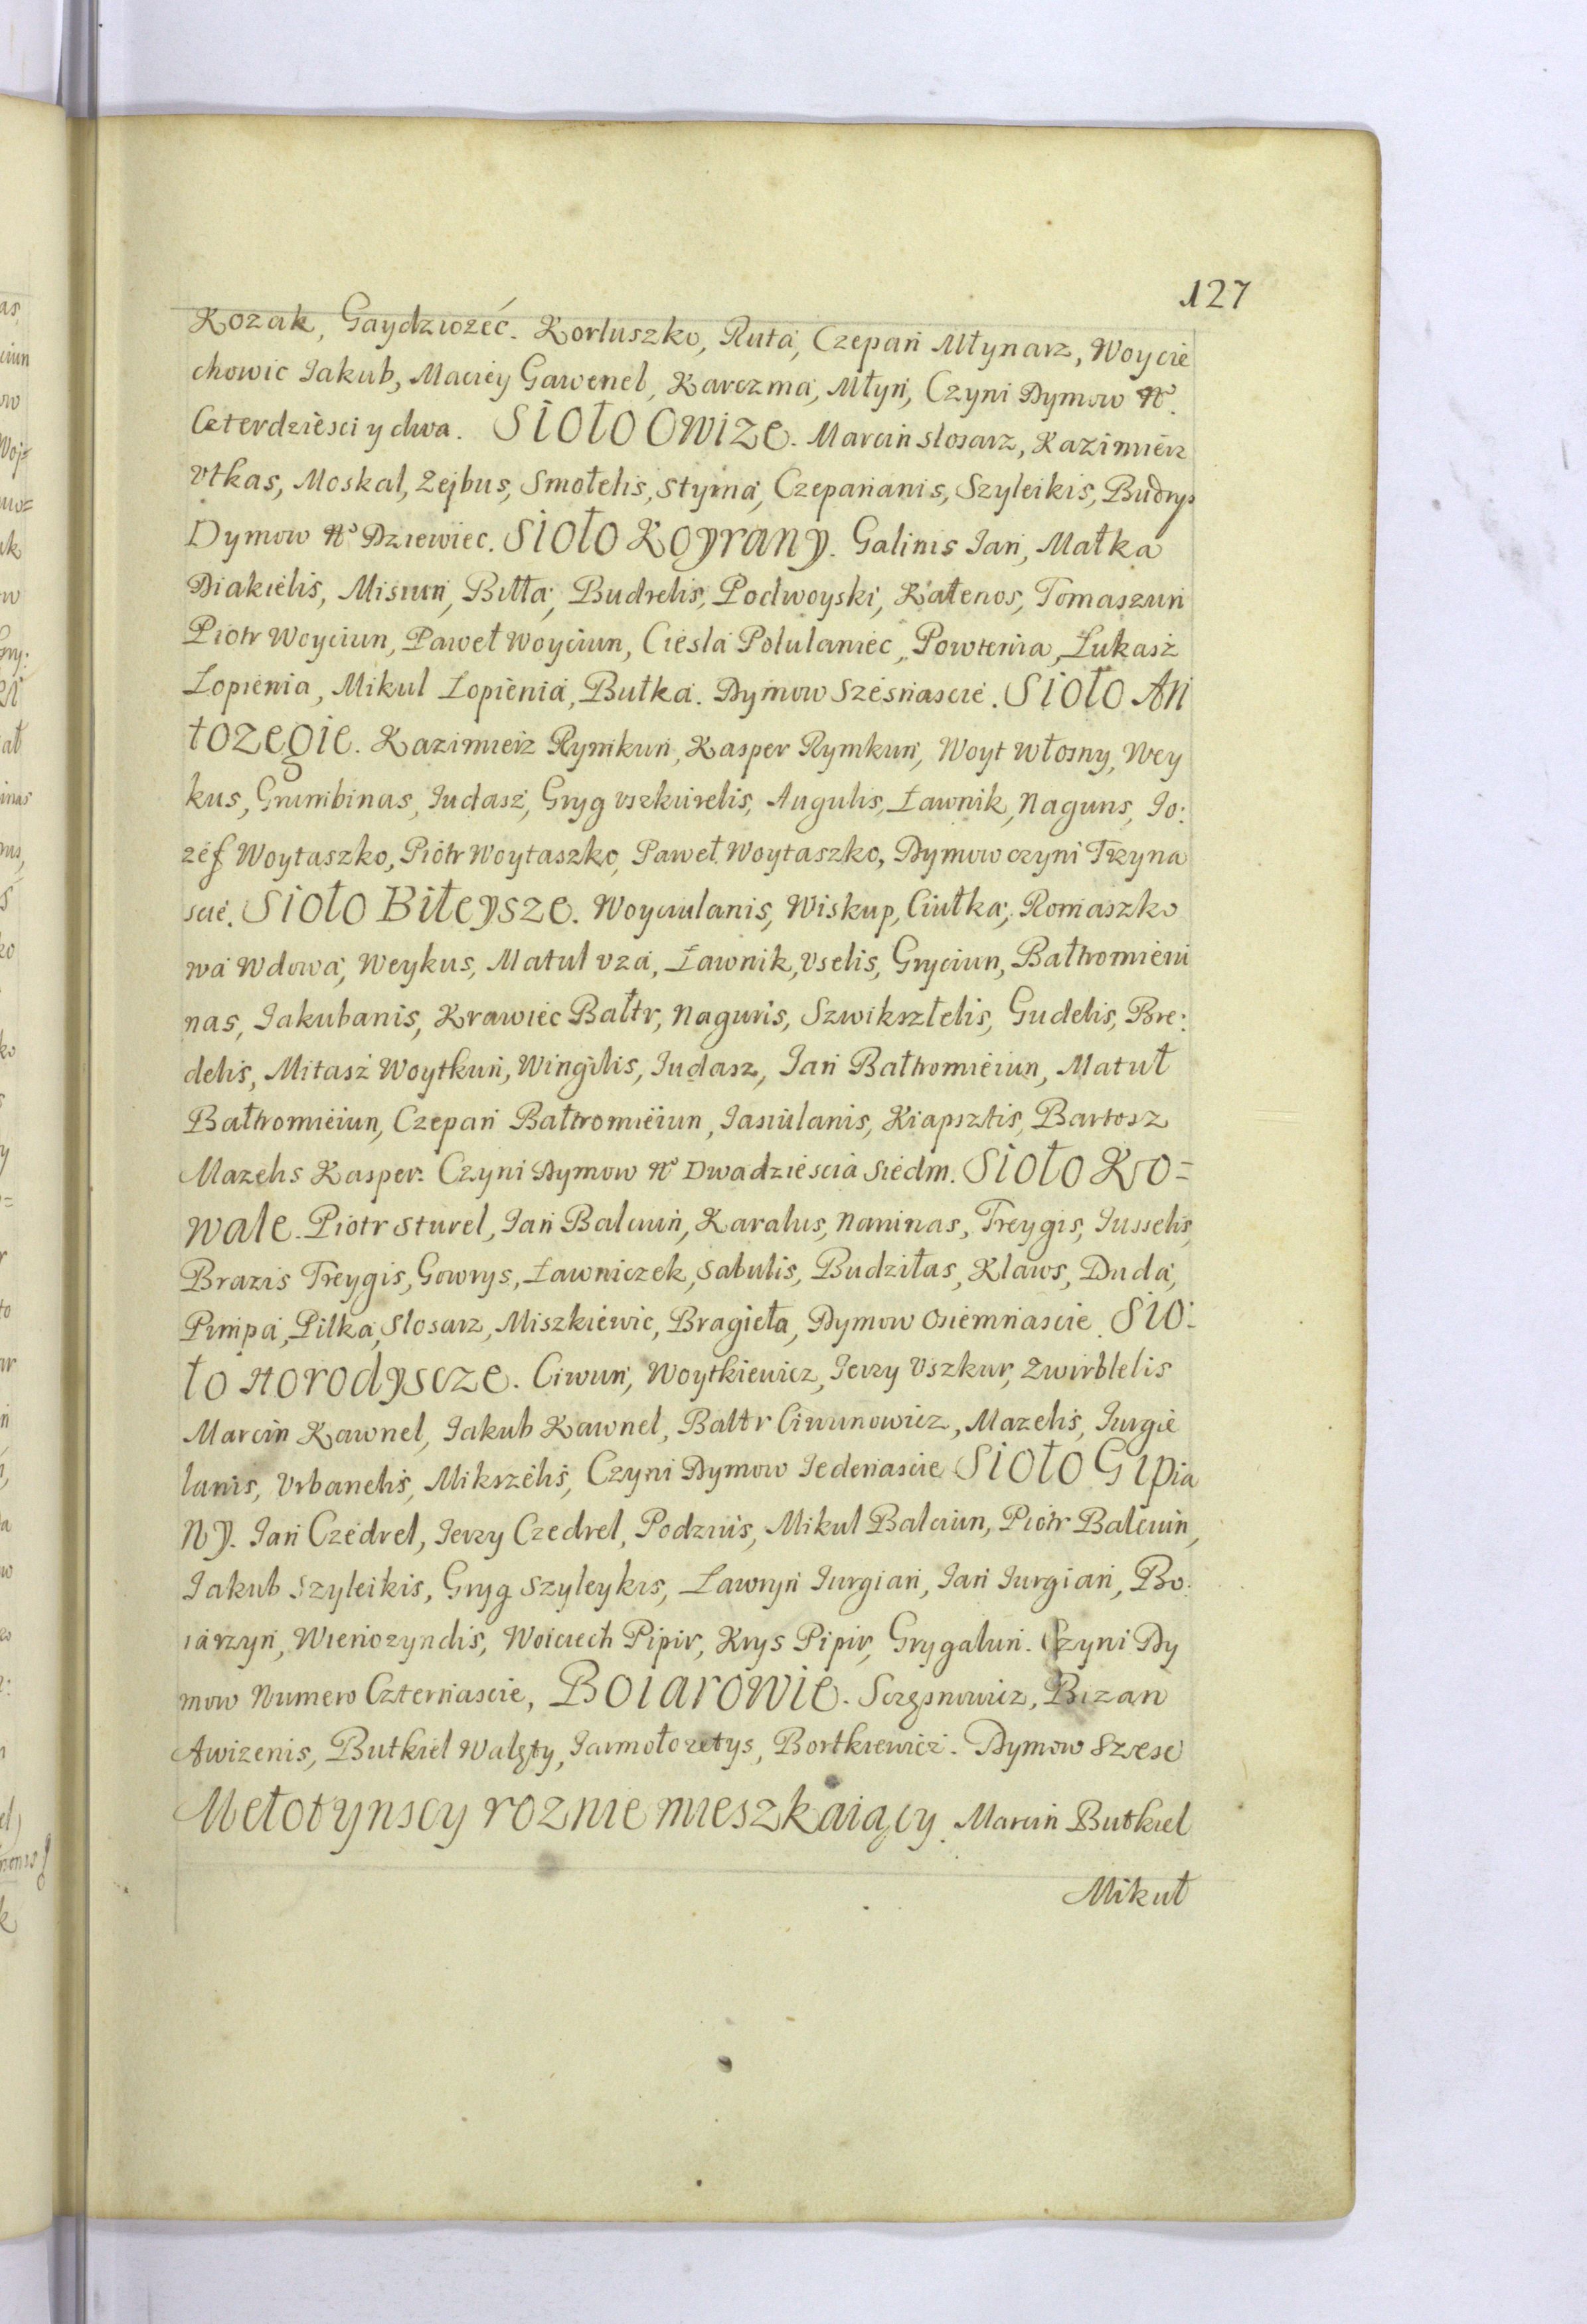 127
Kozak, Gaydziozeć. Korluszko, Ruta, Czepań Młynarz, Woycie
chowic Iakub, Maciey Gawenel, Karczma, Młyn, Czyni Dymow No.
Czterdziesci y dwa. Sioło Owize. Marcin slosarz, Kazimierz
Utkas, Moskal, Zejbus, Smołelis, Styrna, Czepananis, Szyleikis, Budrys
Dymow No Dziewiec. Sioło Koyrany. Galinis Ian, Matka
Diakielis, Misiun, Biłła, Budrelis, Podwoyski, Kałenos, Tomaszun
Piotr Woyciun, Paweł Woyciun, Ciesla Polulaniec, Powienia, Łukasz
Łopienia, Mikul Łopienia, Bułka. Dymow Szesnascie. Sioło An
tozegie. Kazimierz Rymkun, Kasper Rymkun, Woyt Włosny, Wey
kus, Grumbinas, Iudasz, Gryg Uszkurelis, Augulis, Ławnik, Naguns, Io:
zef Woytaszko, Piotr Woytaszko, Paweł Woytaszko, Dymow czyni Trzyna
scie. Sioło Biłeysze. Woyciulanis, Wiskup, Ciułka, Romaszko
wa Wdowa, Weykus, Matul Uza, Ławnik, Uselis, Gryciun, Bałtromieiu
nas, Iakubanis, Krawiec Bałtr, Naguris, Szwiksztelis, Gudelis, Bre:
delis, Mitasz Woytkun, Wingilis, Iudasz, Ian Bałtromieiun, Matuł
Bałtromieiun, Czepań Bałtromieiun, Iasiulanis, Kiapsztis, Bartosz
Mazelis Kasper. Czyni Dymow No Dwadziescia siedm. Sioło Ko=
wale. Piotr Sturel, Ian Balciun, Karalus, Naninas, Treygis, Iusselis,
Brazis Treygis, Gowrys, Ławniczek, Sabulis, Budziłas, Klaws, Duda,
Pimpa, Pilka, Slosarz, Miszkiewic, Bragieła, Dymow Osiemnascie. Sio:
ło Horodyscze. Ciwun, Woytkiewicz, Ierzy Uszkur, Zwirblelis
Marcin Kawnel, Iakub Kawnel, Baltr Ciwunowicz, Mazelis, Iurgie
lanis, Urbanelis, Mikszelis, Czyni Dymow Iedenascie Sioło Gipia
ny. Ian Czedrel, Ierzy Czedrel, Podzius, Mikul Balciun, Piotr Balciun,
Iakub Szyleikis, Gryg Szyleykis, Ławryn Iurgian, Ian Iurgian, Bo:
iarzyn, Wienozyndis, Woiciech Pipir, Krys Pipir, Grygalun. Czyni Dy
mow Numero Czternascie, Boiarowie. Sczęsnowicz, Bizan
Awizenis, Butkiel Walęty, Bortkiewicz. Dymow szesc
Mełotynscy roznie mieszkaiący. Marcin Butkiel
Mikuł